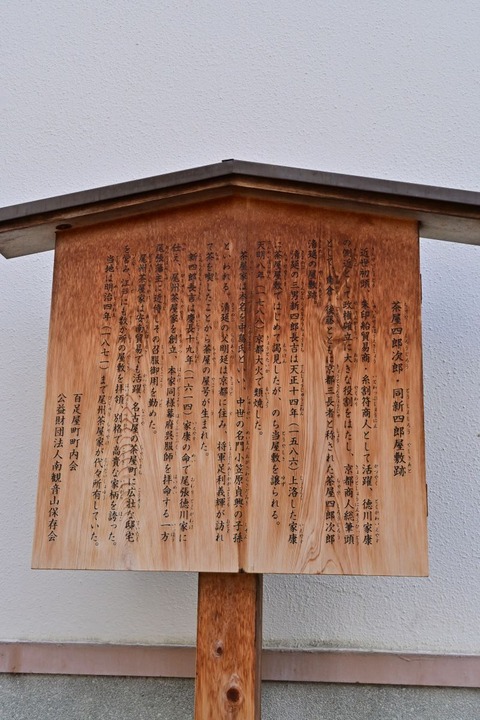 茶屋四郎次郎・同新四郎屋敷跡
近世初頭、朱印船貿易商、糸割符商人として活躍、徳川家康
の側近として政権確立に大きな役割をはたし、京都商人総筆頭
として角倉、後藤とともに京都三長者と称された茶屋四郎次郎
清延の屋敷跡。
清延の三男新四郎長吉は天正十四年(一五八六)上洛した家康
に茶屋屋敷ではじめて謁見したが、のち当屋敷を譲られる。
天明八年(一七八八)京都大火で類焼した。
茶屋家は本姓を中島氏といい、中世の名門小笠原貞興の子孫
といわれる。清延の父明延は京都に住み、将軍足利義輝が訪れ
て茶を喫したことから茶屋の屋号が生まれた。
新四郎長吉は慶長十九年(一六一四)家康の命で尾張徳川家に
仕え、尾州茶屋家を創立、本家同様幕府呉服師を拝命する一方
尾張藩主に近侍、その召服御用を勤めた。
尾州茶屋家は安南貿易でも活躍、名古屋の茶屋町に広壮な邸宅
を営み、江戸にも数か所屋敷を拝領、別格で高貴な家柄を誇った。
当地は明治四年(一八七一)まで尾州茶屋家が代々所有していた。
百足屋町町内会
公益財団法人南観音山保存会